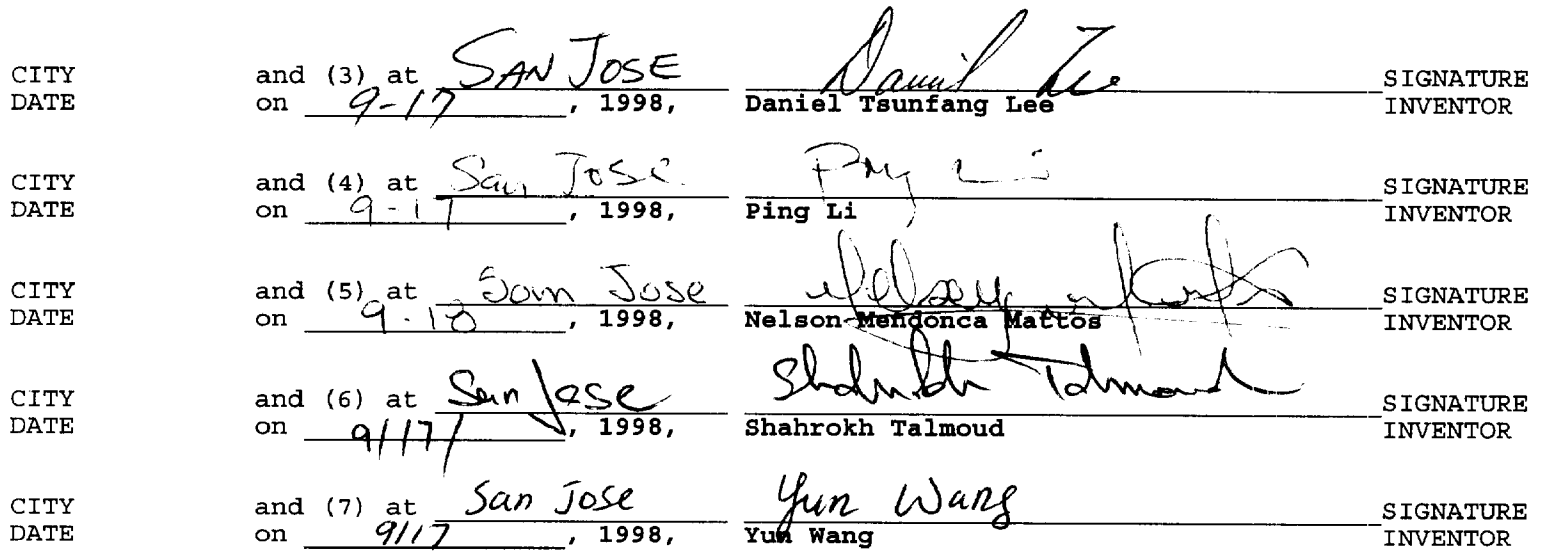 CITY and (3) at SAN JOSE Daniel Lee SIGNATURE
DATE on 9-17, 1998, Daniel Tsunfang Lee INVENTOR
CITY and (4) at San Jose Ping Li SIGNATURE
DATE on 9-17, 1998, Ping Li INVENTOR
CITY and (5) at San Jose SIGNATURE
DATE on 9-18, 1998, Nelson Mendonca Mattos INVENTOR
CITY and (6) at San Jose Shahrokh Talmoud SIGNATURE
DATE on 9/17/, 1998, Shahrokh Talmoud INVENTOR
CITY and (7) at San Jose Yun Wang SIGNATURE
DATE on 9/17, 1998, Yun Wang INVENTOR